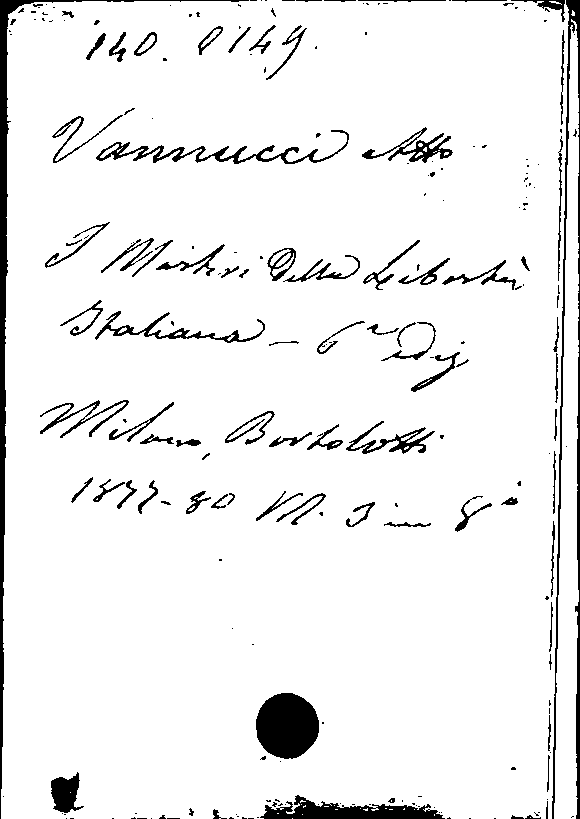 140. 8149.
Vannucci Atto
I Martiri Della Libertà
Italiana - 6a ediz
Milano, Bortolotti
1877-80 Vl. 3 in 8°